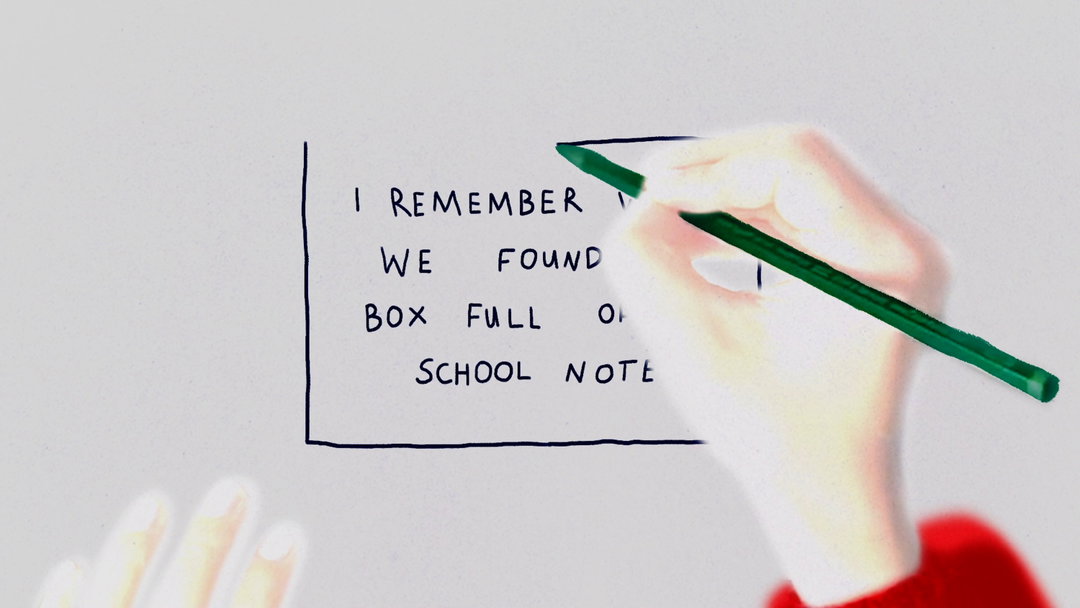 I REMEMBER
WE FOUND
BOX FULL OF
SCHOOL NOTE